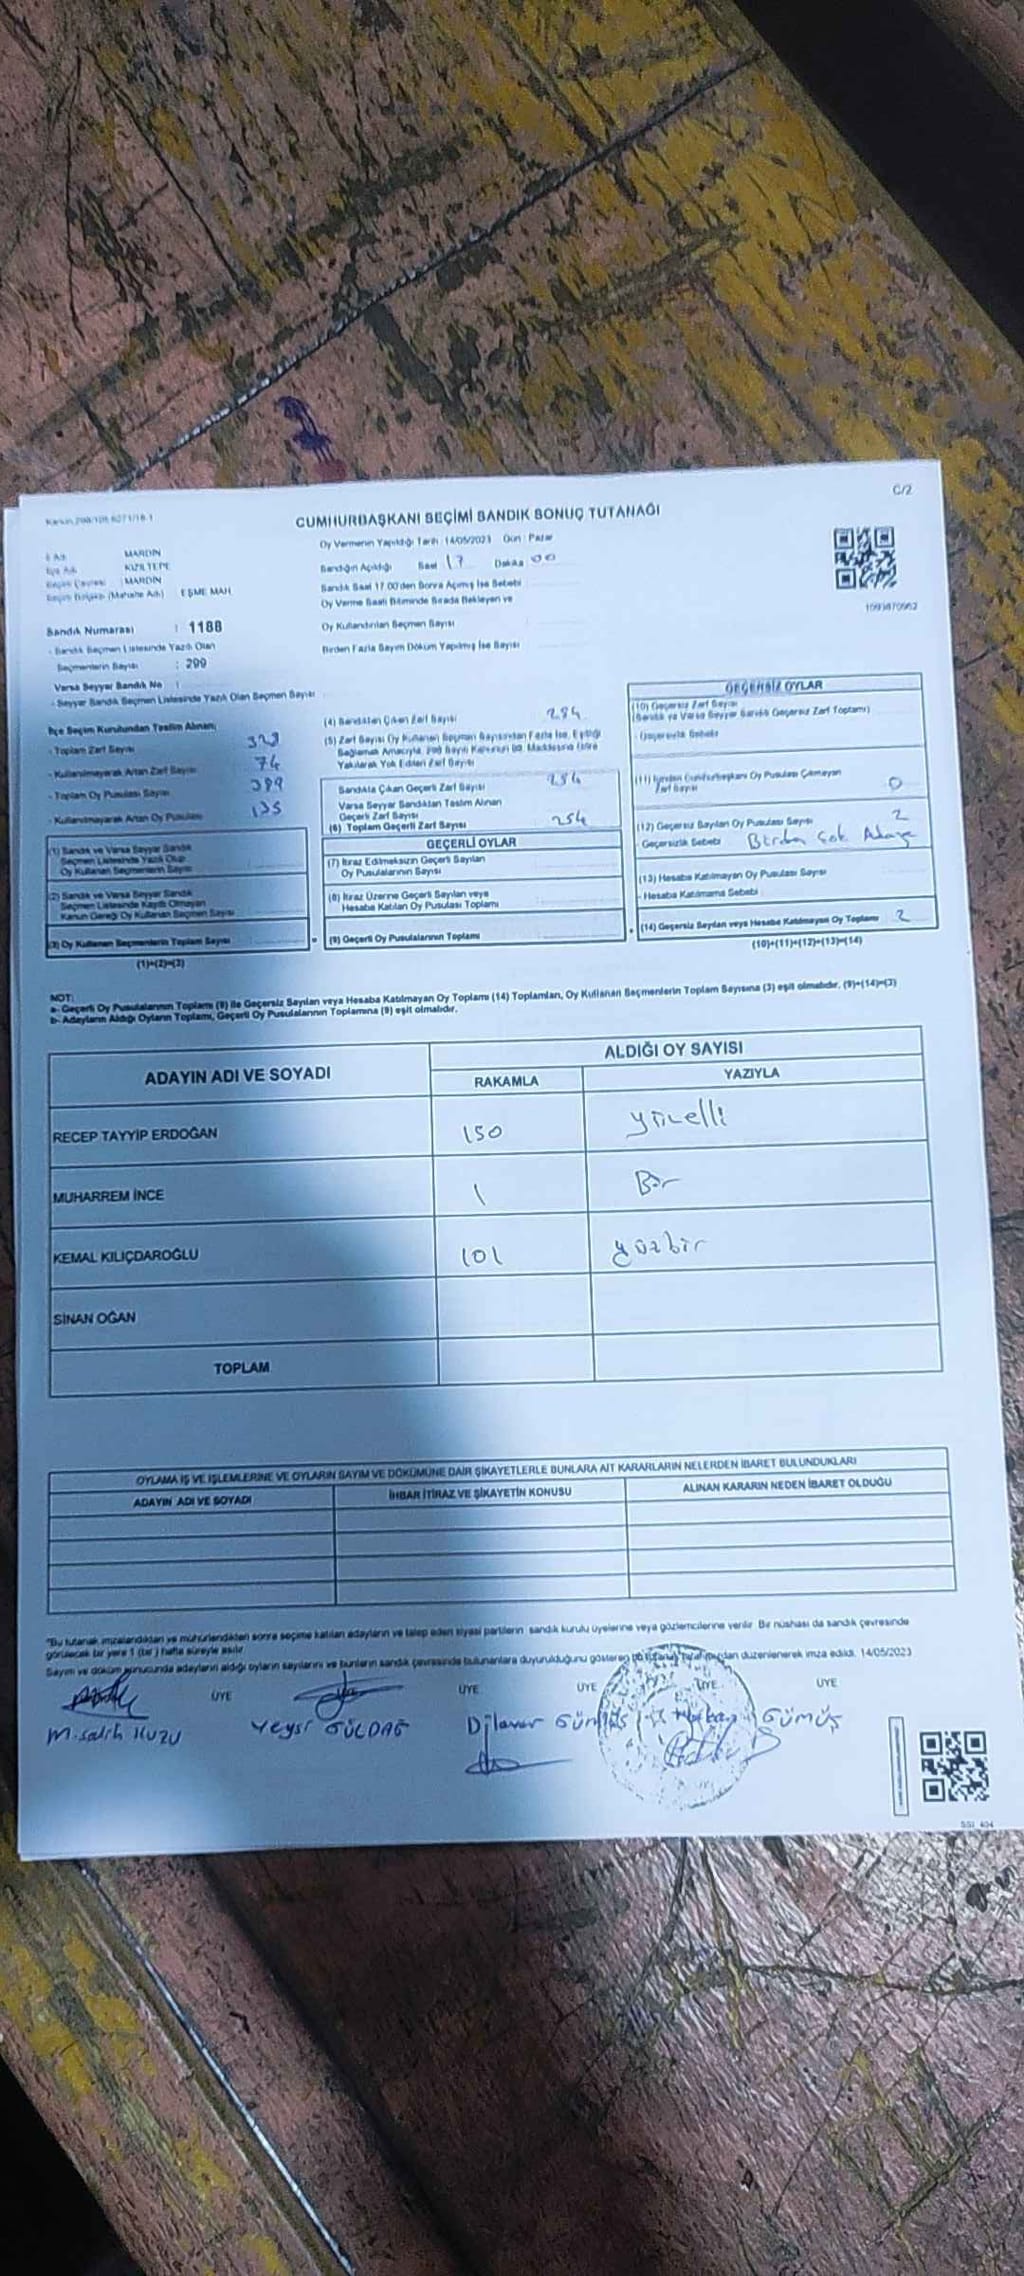 C/2
CUMHURBAŞKANI SEÇİMİ SANDIK SONUÇ TUTANAĞI
Oy Vermenin Yapıldığı Tarih : 14/05/2023 Gün : Pazar
İl Adı MARDİN
İlçe Adı KIZILTEPE
Seçim Çevresi : MARDİN
Seçim Bölgesi (Mahalle Adı) EŞME MAH.
Sandığın Açıldığı Saat 17 Dakika 00
Sandık Saat 17.00'den Sonra Açılmış İse Sebebi
Oy Verme Saati Bitiminde Sırada Bekleyen ve
Oy Kullandırılan Seçmen Sayısı
Birden Fazla Sayım Döküm Yapılmış İse Sayısı
Sandık Numarası : 1188
- Sandık Seçmen Listesinde Yazılı Olan
Seçmenlerin Sayısı : 299
Varsa Seyyar Sandık No
- Seyyar Sandık Seçmen Listesinde Yazılı Olan Seçmen Sayısı
İlçe Seçim Kurulundan Teslim Alınan;
- Toplam Zarf Sayısı
- Kullanılmayarak Artan Zarf Sayısı 74
- Toplam Oy Pusulası Sayısı 389
- Kullanılmayarak Artan Oy Pusulası 135
(1) Sandık ve Varsa Seyyar Sandık
Seçmen Listesinde Yazılı Olup
Oy Kullanan Seçmenlerin Sayısı
(2) Sandık ve Varsa Seyyar Sandık
Seçmen Listesinde Kayıtlı Olmayan
Kanun Gereği Oy Kullanan Seçmen Sayısı
(3) Oy Kullanan Seçmenlerin Toplam Sayısı
(1)+(2)=(3)
(4) Sandıktan Çıkan Zarf Sayısı 254
(5) Zarf Sayısı Oy Kullanan Seçmen Sayısından Fazla İse, Eşitliği
Sağlamak Amacıyla, 298 Sayılı Kanunun 98. Maddesine Göre
Yakılarak Yok Edilen Zarf Sayısı
Sandıkta Çıkan Geçerli Zarf Sayısı 254
Varsa Seyyar Sandıktan Teslim Alınan
Geçerli Zarf Sayısı
(6) Toplam Geçerli Zarf Sayısı 254
GEÇERLİ OYLAR
(7) İtiraz Edilmeksizin Geçerli Sayılan
Oy Pusulalarının Sayısı
(8) İtiraz Üzerine Geçerli Sayılan veya
Hesaba Katılan Oy Pusulası Toplamı
(9) Geçerli Oy Pusulalarının Toplamı
GEÇERSİZ OYLAR
(10) Geçersiz Zarf Sayısı
(Sandık ve Varsa Seyyar Sandık Geçersiz Zarf Toplamı)
- Geçersizlik Sebebi
(11) İçinden Cumhurbaşkanı Oy Pusulası Çıkmayan
Zarf Sayısı 0
(12) Geçersiz Sayılan Oy Pusulası Sayısı 2
- Geçersizlik Sebebi Birden Çok Adaya
(13) Hesaba Katılmayan Oy Pusulası Sayısı
- Hesaba Katılmama Sebebi
(14) Geçersiz Sayılan veya Hesaba Katılmayan Oy Toplamı 2
(10)+(11)+(12)+(13)=(14)
NOT:
a- Geçerli Oy Pusulalarının Toplamı (9) ile Geçersiz Sayılan veya Hesaba Katılmayan Oy Toplamı (14) Toplamları, Oy Kullanan Seçmenlerin Toplam Sayısına (3) eşit olmalıdır. (9)+(14)=(3)
b- Adayların Aldığı Oyların Toplamı, Geçerli Oy Pusulalarının Toplamına (9) eşit olmalıdır.
ADAYIN ADI VE SOYADI ALDIĞI OY SAYISI
RAKAMLA YAZIYLA
RECEP TAYYİP ERDOĞAN 150 yüzelli
MUHARREM İNCE 1 Bir
KEMAL KILIÇDAROĞLU 101 yüzbir
SİNAN OĞAN
TOPLAM
OYLAMA İŞ VE İŞLEMLERİNE VE OYLARIN SAYIM VE DÖKÜMÜNE DAİR ŞİKAYETLERLE BUNLARA AİT KARARLARIN NELERDEN İBARET BULUNDUKLARI
ADAYIN ADI VE SOYADI İHBAR İTİRAZ VE ŞİKAYETİN KONUSU ALINAN KARARIN NEDEN İBARET OLDUĞU
*Bu tutanak imzalandıktan ve mühürlendikten sonra seçime katılan adayların ve talep eden siyasi partilerin sandık kurulu üyelerine veya gözlemcilerine verilir. Bir nüshası da sandık çevresinde
görülecek bir yere 1 (bir) hafta süreyle asılır.
Sayım ve döküm sonucunda adayların aldığı oyların sayılarını ve bunların sandık çevresinde bulunanlara duyurulduğunu gösteren bu tutanak tarafımızdan düzenlenerek imza edildi. 14/05/2023
ÜYE ÜYE ÜYE ÜYE ÜYE
M.Salih KUZU Veysi GÜLDAĞ Dilaver GÜMÜŞ GÜMÜŞ